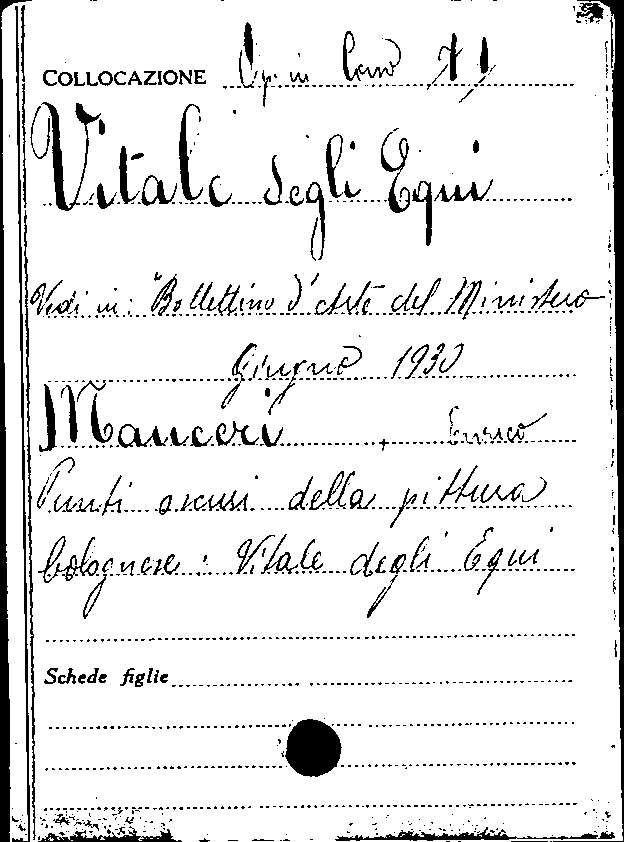 COLLOCAZIONE Op. in Corso
Vitale degli Equi
Vedi in: "Bollettino d'Arte del Ministero
Giugno 1930
Mauceri, Enrico
Punti oscuri della pittura
bolognese: Vitale degli Equi
Schede figlie